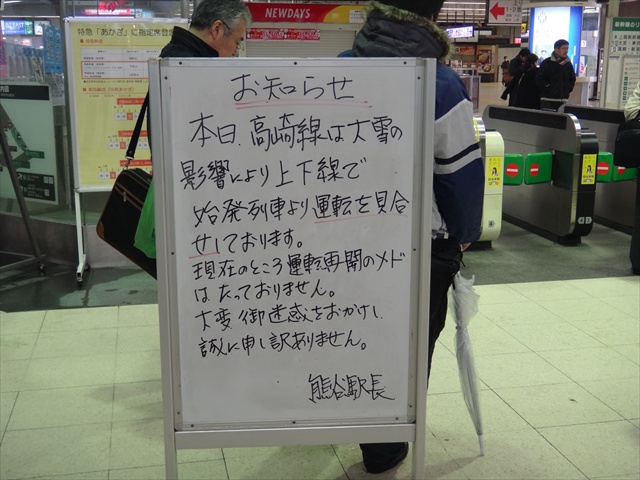 お知らせ
本日、高崎線は大雪の
影響により上下線で
始発列車より運転を見合
せしております。
現在のところ運転再開のメド
はたっておりません。
大変御迷惑をおかけし
誠に申し訳ありません。
熊谷駅長
NEWDAYS
特急「あかぎ」に指定席登